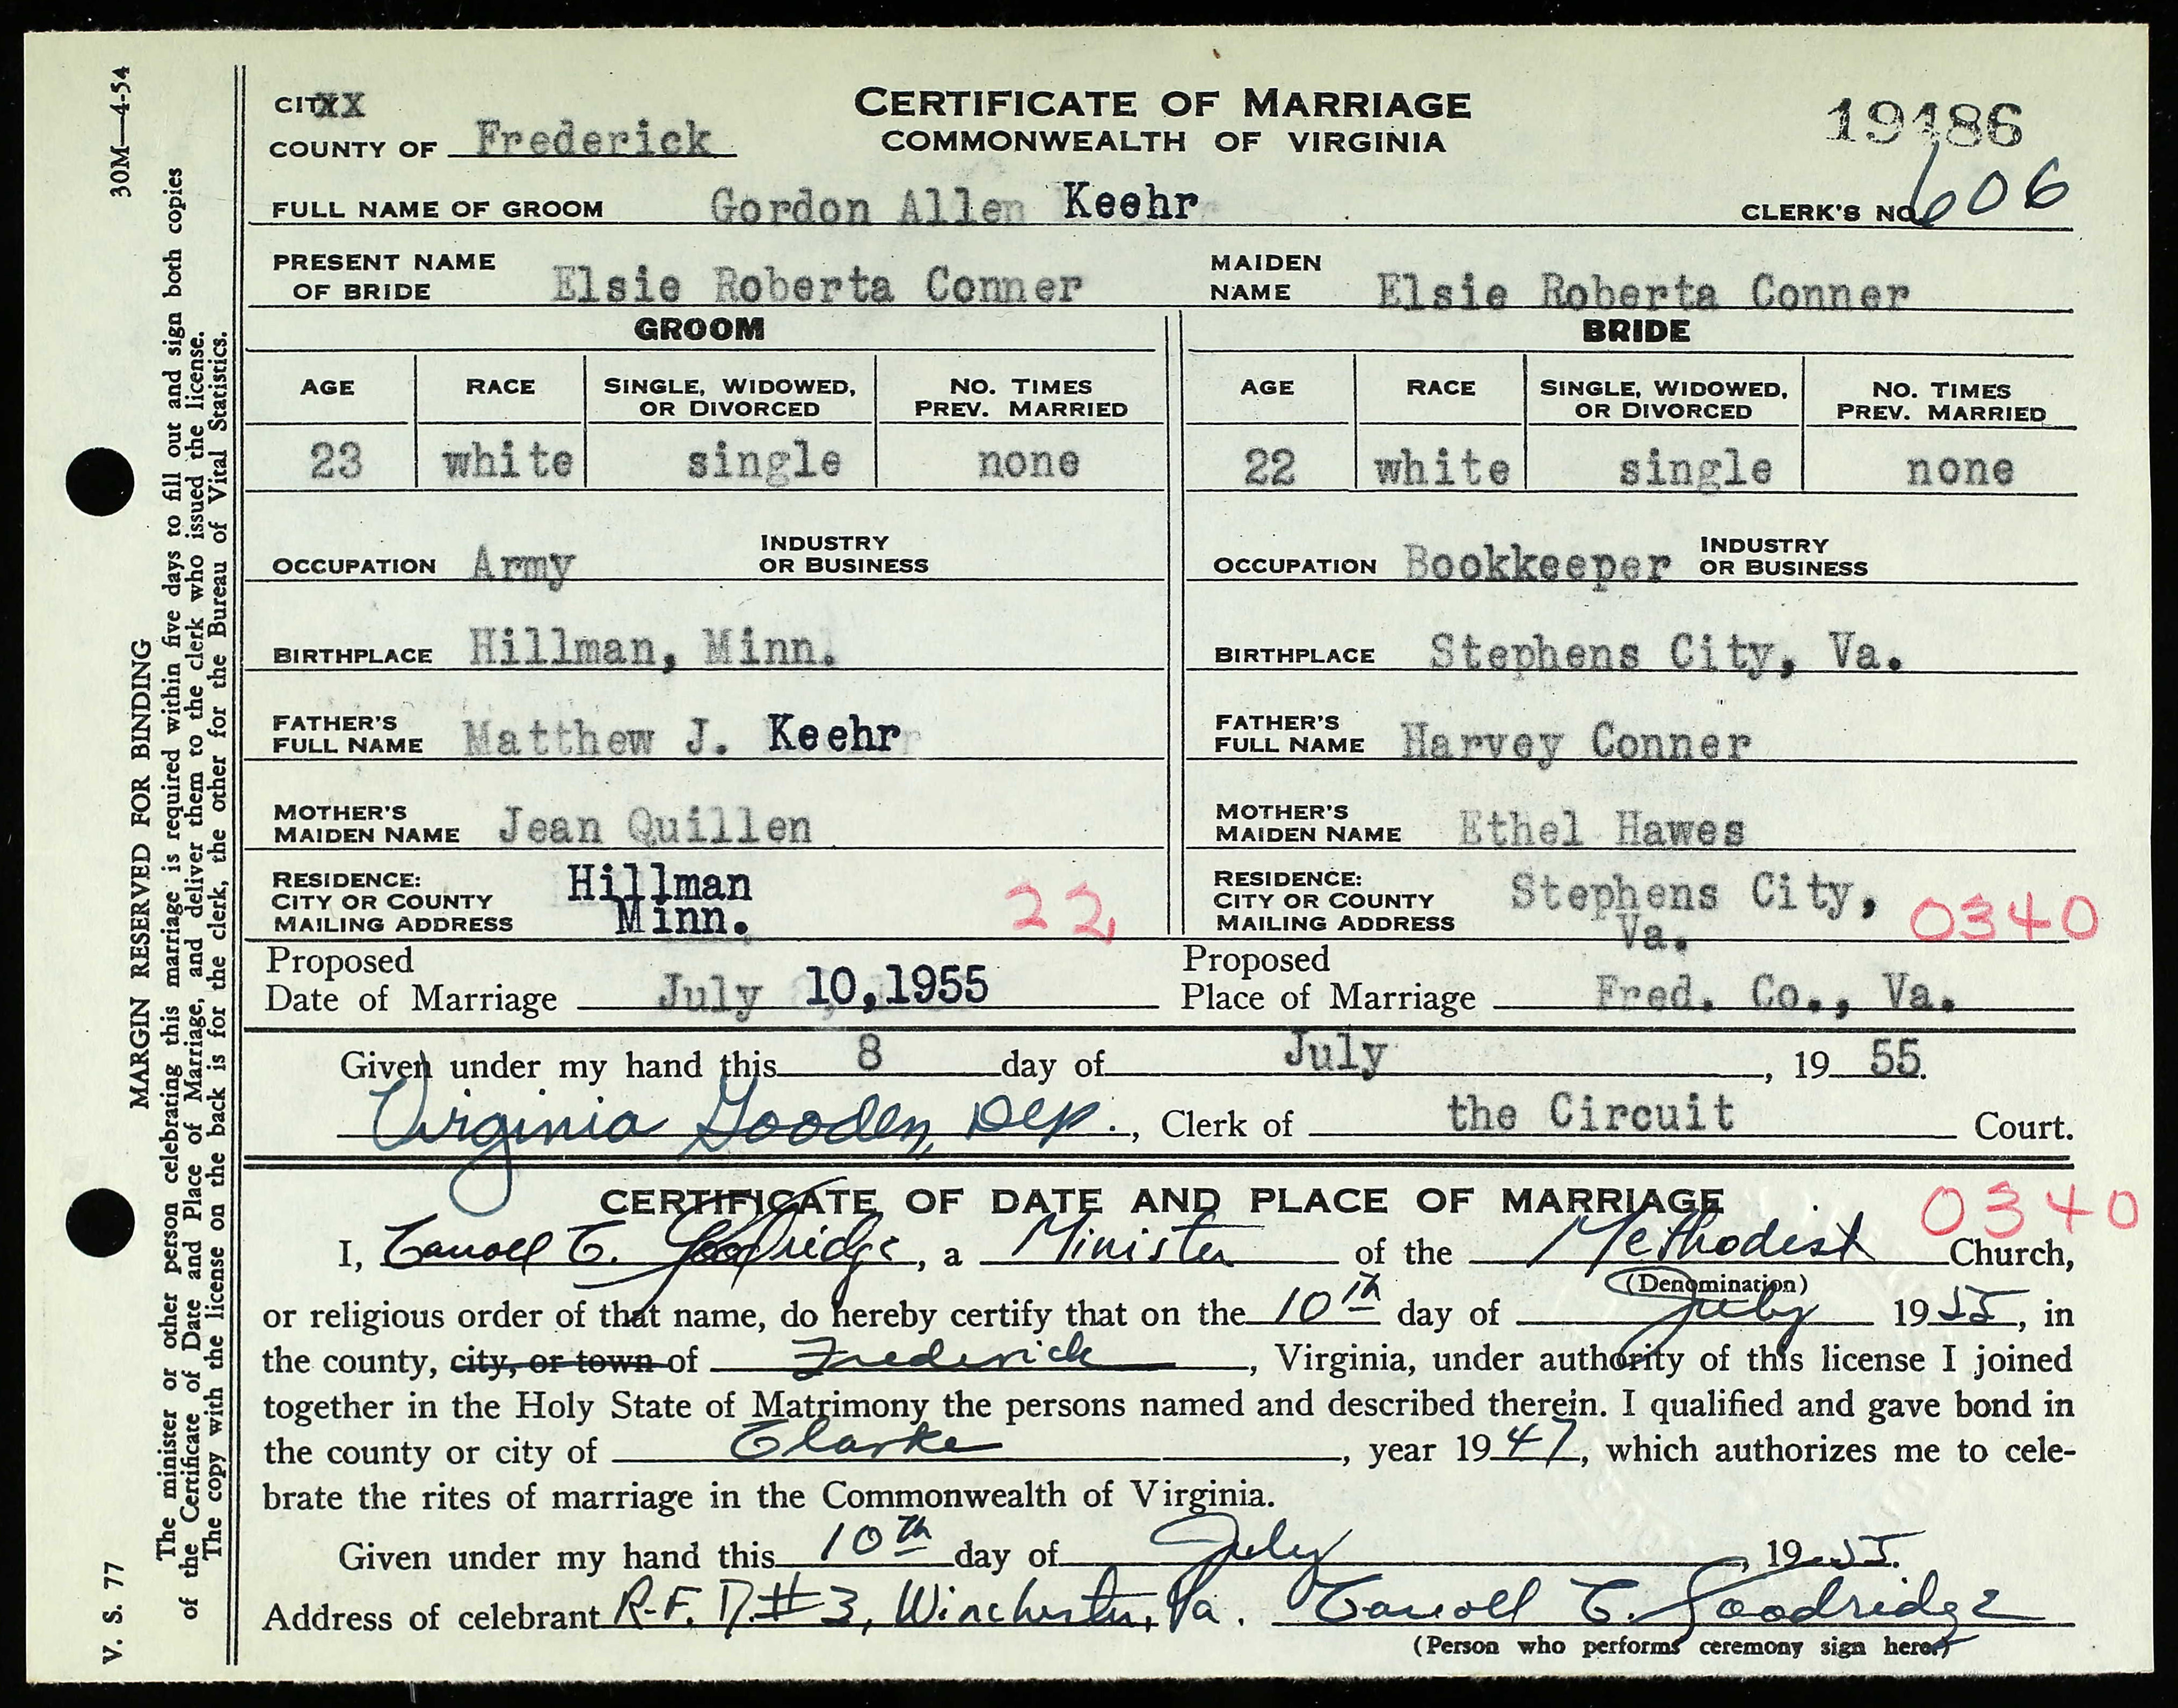 CITYXX
COUNTY OF Frederick
CERTIFICATE OF MARRIAGE
COMMONWEALTH OF VIRGINIA
19486
FULL NAME OF GROOM Gordon Allen Keehr CLERK'S NO. 606
PRESENT NAME OF BRIDE Elsie Roberta Conner MAIDEN NAME Elsie Roberta Conner
GROOM BRIDE
AGE RACE SINGLE, WIDOWED, OR DIVORCED NO. TIMES PREV. MARRIED AGE RACE SINGLE, WIDOWED, OR DIVORCED NO. TIMES PREV. MARRIED
23 white single none 22 white single none
OCCUPATION Army INDUSTRY OR BUSINESS OCCUPATION Bookkeeper INDUSTRY OR BUSINESS
BIRTHPLACE Hillman, Minn. BIRTHPLACE Stephens City, Va.
FATHER'S FULL NAME Matthew J. Keehr FATHER'S FULL NAME Harvey Conner
MOTHER'S MAIDEN NAME Jean Quillen MOTHER'S MAIDEN NAME Ethel Hawes
RESIDENCE: CITY OR COUNTY MAILING ADDRESS Hillman Minn. 22 RESIDENCE: CITY OR COUNTY MAILING ADDRESS Stephens City, Va. 0340
Proposed Date of Marriage July 10,1955 Proposed Place of Marriage Fred. Co., Va.
Given under my hand this 8 day of July, 19 55.
Virginia Gooden, Dep., Clerk of the Circuit Court.
CERTIFICATE OF DATE AND PLACE OF MARRIAGE 0340
I, Carroll C. Goodridge, a Minister of the Methodist Church,
(Denomination)
or religious order of that name, do hereby certify that on the 10th day of July 1955, in
the county, city, or town of Frederick, Virginia, under authority of this license I joined
together in the Holy State of Matrimony the persons named and described therein. I qualified and gave bond in
the county or city of Clarke, year 1947, which authorizes me to cele-
brate the rites of marriage in the Commonwealth of Virginia.
Given under my hand this 10th day of July, 1955.
Address of celebrant R.F.D.#3, Winchester, Va. Carroll C. Goodridge
(Person who performs ceremony sign here.)
30M—4-54
MARGIN RESERVED FOR BINDING
V. S. 77
The minister or other person celebrating this marriage is required within five days to fill out and sign both copies
of the Certificate of Date and Place of Marriage, and deliver them to the clerk who issued the license.
The copy with the license on the back is for the clerk, the other for the Bureau of Vital Statistics.